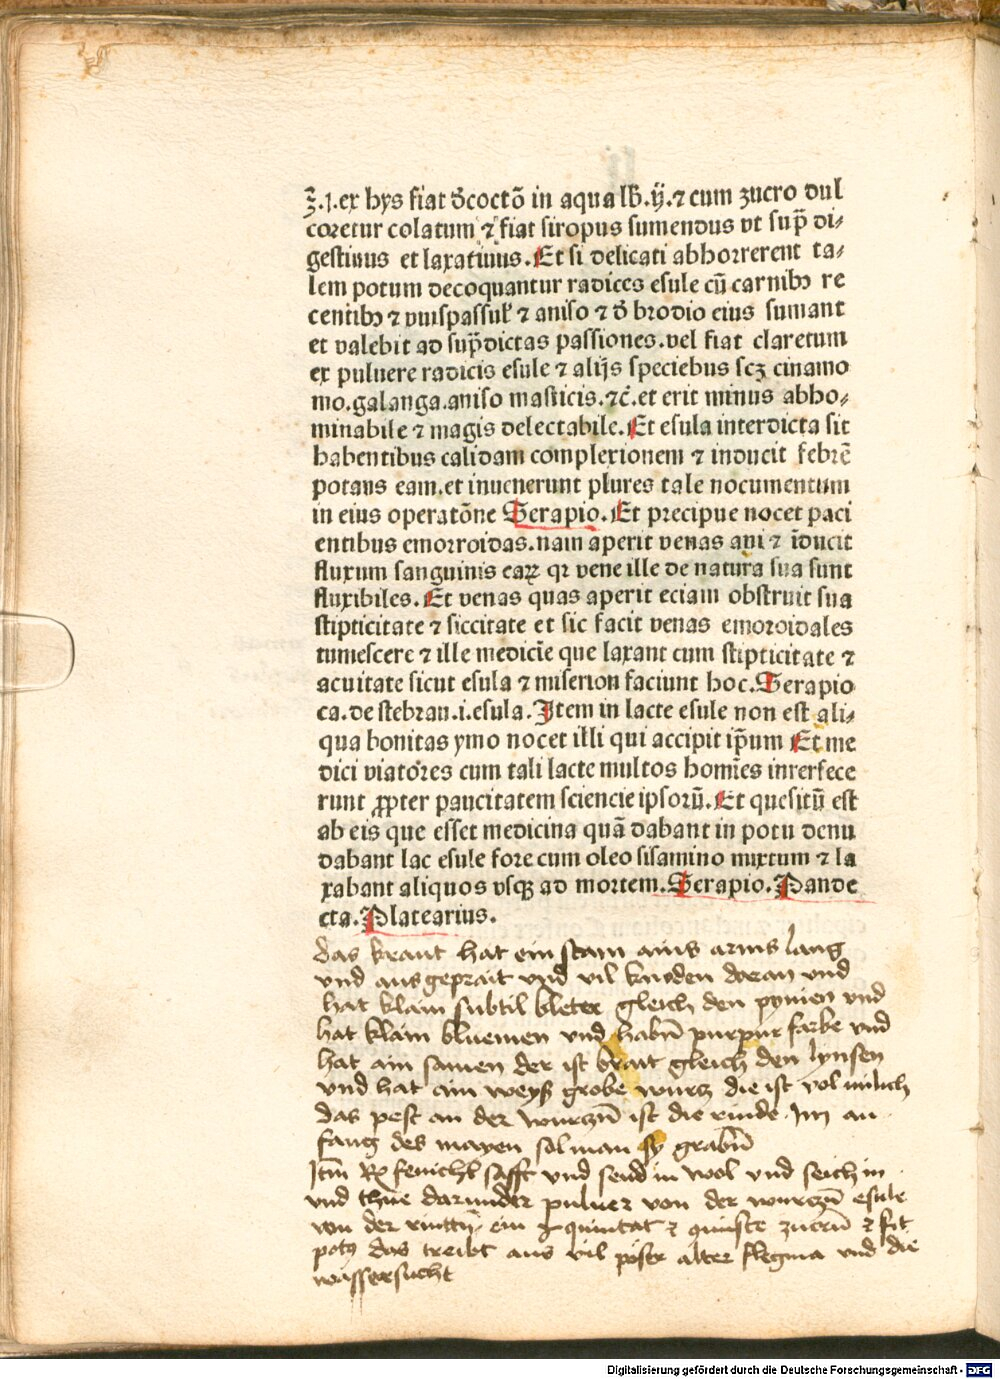 ʒ.j.ex hys fiat dͤcoctō in aqua lb̄.ij.⁊ cum zucro dul
coretur colatum ⁊ fiat siropus sumendus vt sup̄ di⸗
gestiuus et laxatiuus.Et si delicati abhorrerent ta⸗
lem potum decoquantur radices esule cū carnibꝫ re
centibꝫ ⁊ vuispassuł ⁊ aniso ⁊ dͤ brodio eius sumant
et valebit ad sup̄dictas passiones.vel fiat claretum
ex puluere radicis esule ⁊ alijs speciebus scꝫ cinamo
mo.galanga.aniso masticis.⁊c̄.et erit minus abho⸗
minabile ⁊ magis delectabile.Et esula interdicta sit
habentibus calidam complexionem ⁊ inducit febrē
potans eam.et inuenerunt plures tale nocumentum
in eius operatōne Serapio.Et precipue nocet paci
entibus emorroidas.nam aperit venas ani ⁊ īducit
fluxum sanguinis eaꝝ qꝛ vene ille de natura sua sunt
fluxibiles.Et venas quas aperit eciam obstruit sua
stipticitate ⁊ siccitate et sic facit venas emoroidales
tumescere ⁊ ille medicīe que laxant cum stipticitate ⁊
acuitate sicut esula ⁊ miserion faciunt hoc.Serapio
ca.de stebran.i.esula.Item in lacte esule non est ali⸗
qua bonitas ymo nocet illi qui accipit ip̄um Et me
dici viatores cum tali lacte multos homīes interfece
runt ꝓpter paucitatem sciencie ipsorū.Et quesitū est
ab eis que esset medicina quā dabant in potu denu
dabant lac esule fore cum oleo sisamino mixtum ⁊ la
xabant aliquos vsqꝫ ad mortem.Serapio.Pande
cta.Platearius.
das kraut hat ein stam ains arms lang
und ausgeprait und vil knoden daran und
hat klain subtil bleter gleich den pynien und
hat klain bluemen und habn̄ purpur farbe und
hat ain samen der ist brait gleich den lynsen
und hat ain weyß grobe wurtz die ist vol milich
das pest an der wurczn̄ ist die rinde. Im an
fang des mayen sol man sy grabn̄
Itm̄ Rx fenichl safft und send in wol und seich in
und thue darunder puluer von der wurczn̄ esule
von der rintten ein quintat ⁊ zucrū ⁊ fit
potꝫ das treibt aus vil pöser alter flegma und die
wassersucht
Digitalisierung gefördert durch die Deutsche Forschungsgemeinschaft - DFG